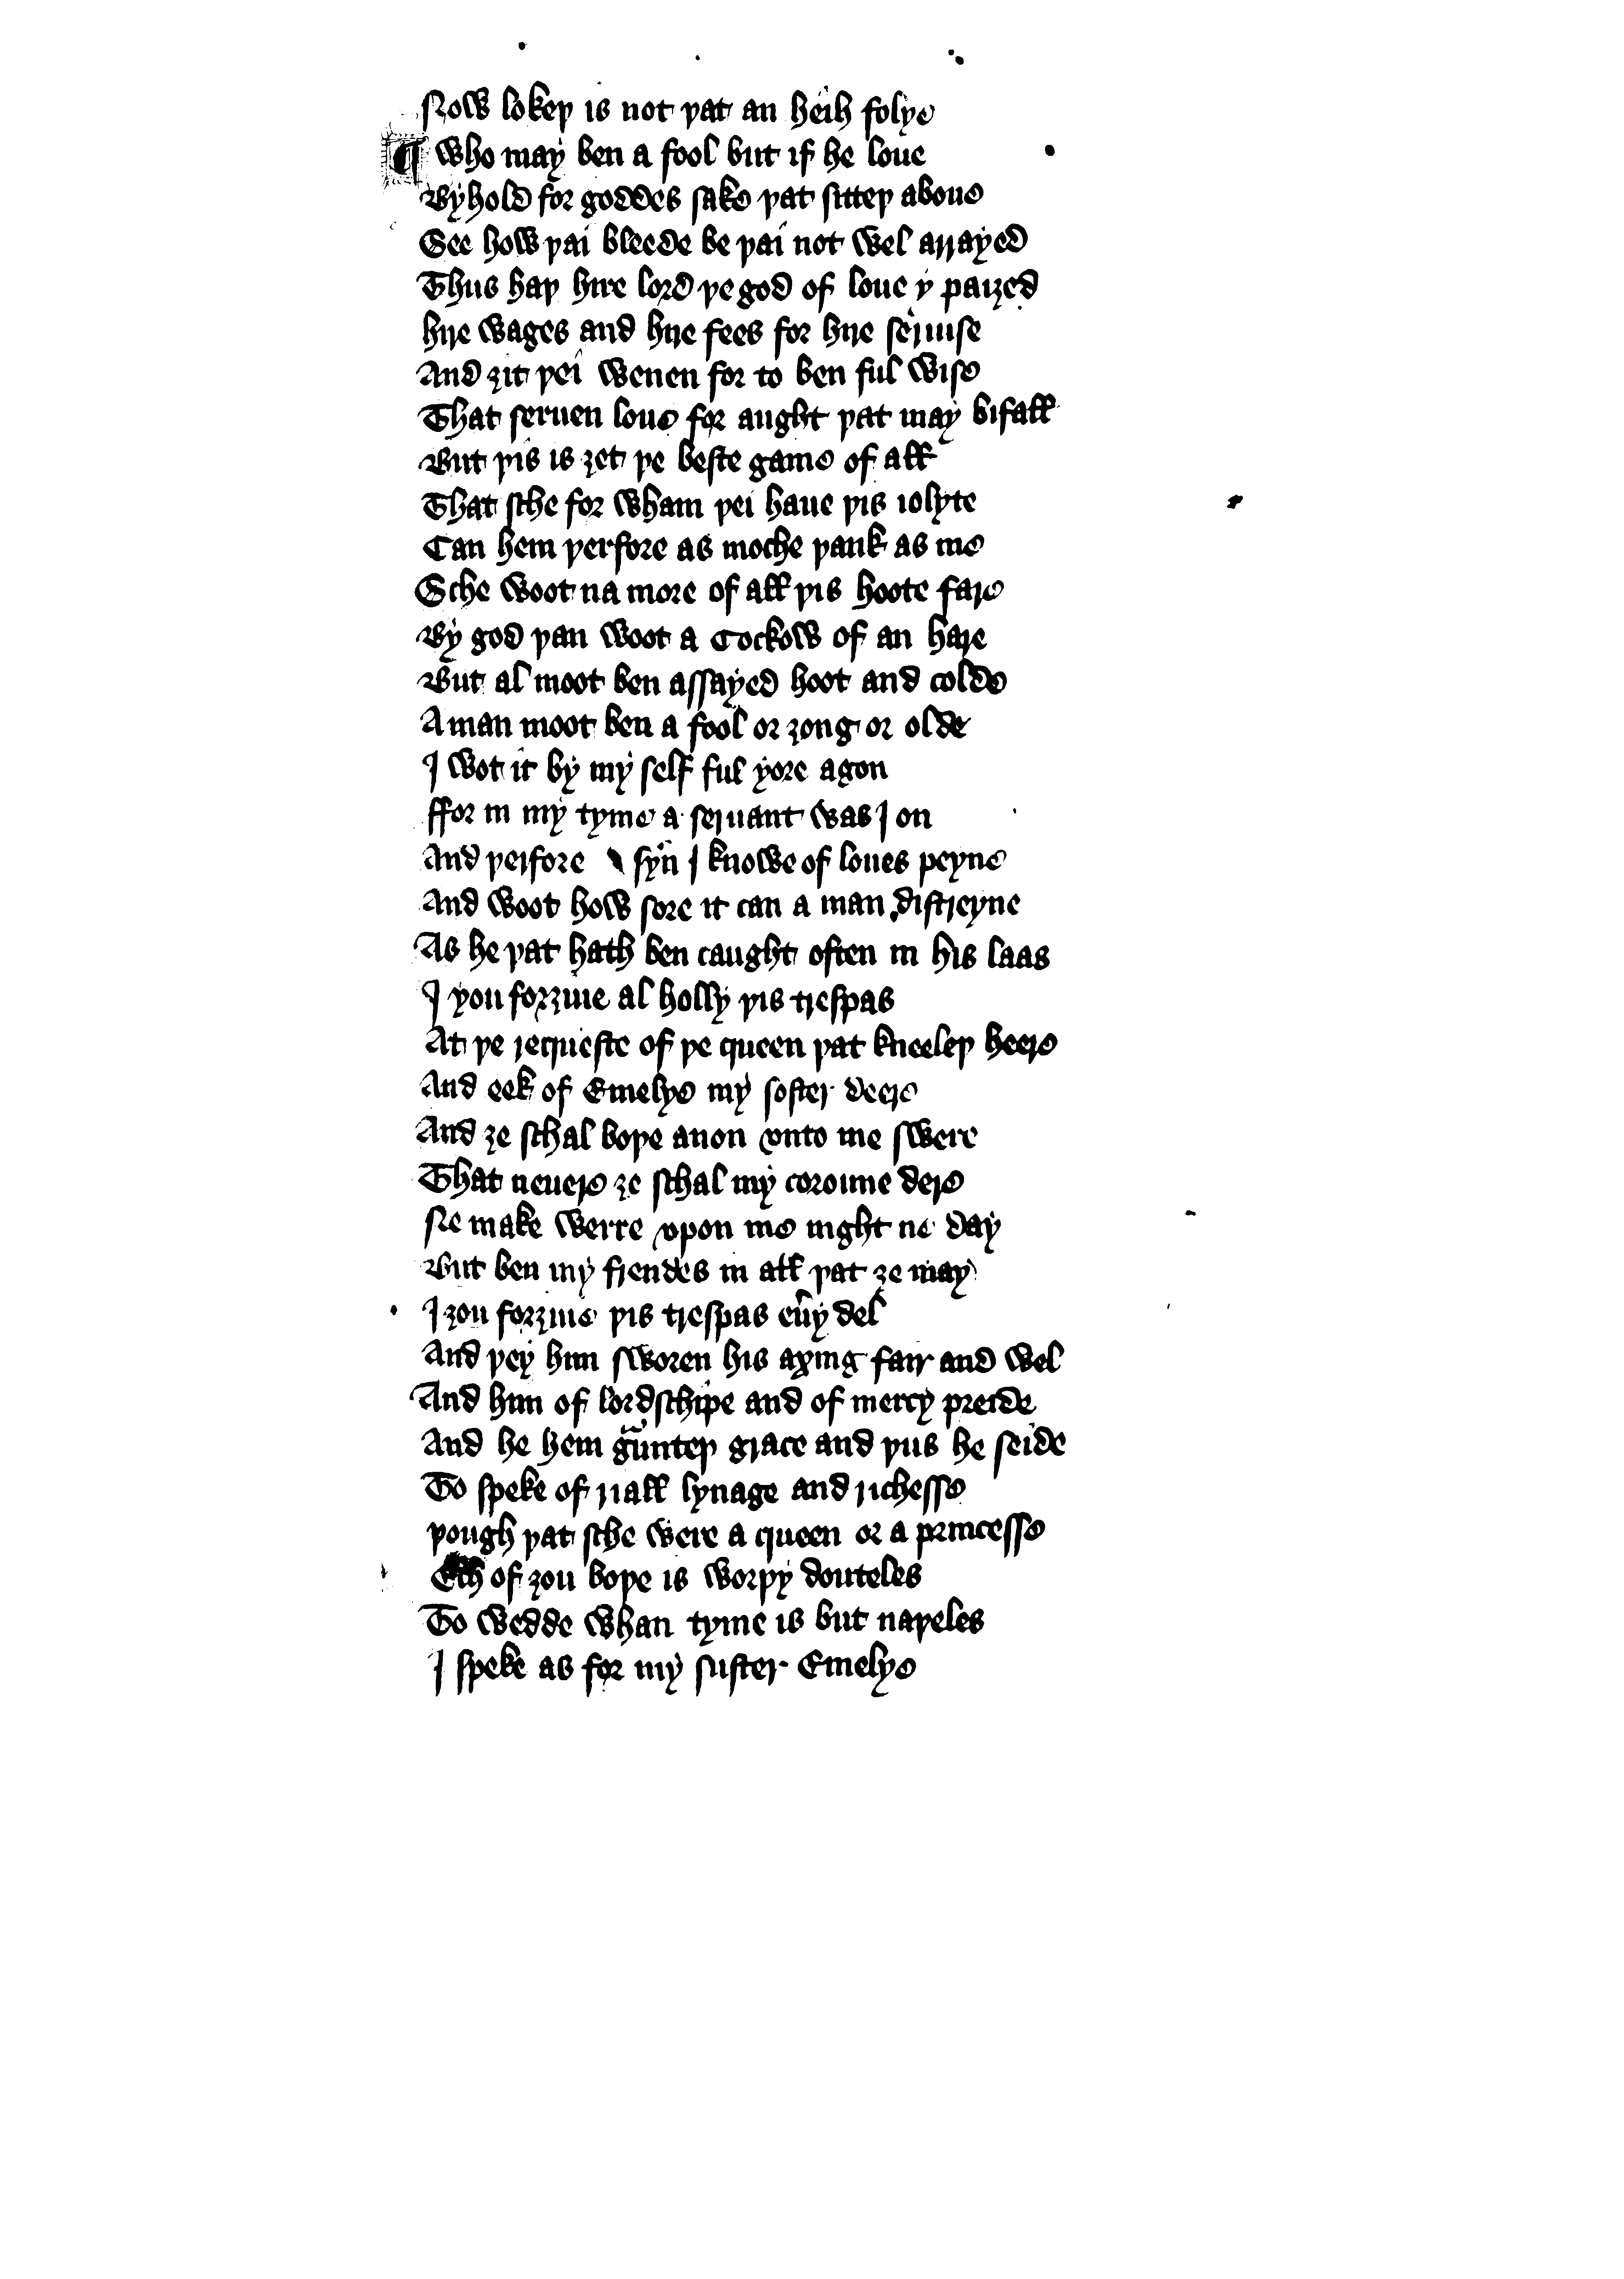 Now lokeþ is not þat an heih folye
¶ Who may ben a fool but if he loue
Byhold for goddes sake þat sitteþ aboue
See how þai bleede be þai not wel arrayed
Thus haþ hire lord þe god of loue y paiȝed
hire wages and hire fees for hire seruise
And ȝit þei wenen for to ben ful wise
That seruen loue for aught þat may bifall
But þis is ȝet þe beste game of all
That sche for wham þei haue þis iolyte
Can hem þerfore as moche þank as me
Sche woot na more of all þis hoote fare
By god þan woot a Cockow of an hare
But al moot ben assayed hoot and colde
A man moot ben a fool or ȝong or olde
I wot it by my self ful ȝore agon
ffor in my tyme a seruant was I on
And þerfore syn I knowe of loues peyne
And woot how sore it can a man distreyne
As he þat hath ben caught often in his laas
I ȝou forȝiue al holly þis trespas
At þe requeste of þe queen þat kneeleþ heere
And eek of Emelye my soster deere
And ȝe schal boþe anon vnto me swere
That neuere ȝe schal my coroune dere
Ne make werre vpon me night ne day
But ben my frendes in all þat ȝe may
I ȝou forȝiue þis trespas eu͛y del
And þey him sworen his axing fair and wel
And him of lordschipe and of mercy preide
And he hem gᵃunteþ grace and þus he seide
To speke of riall lynage and richesse
þough þat sche were a queen or a princesse
Ech of ȝou boþe is worþy douteles
To wedde whan tyme is but naþeles
I speke as for my suster Emelye